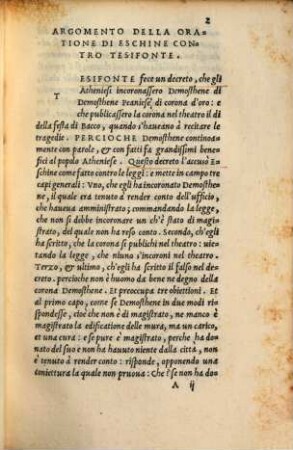 2
ARGOMENTO DELLA ORA=
TIONE DI ESCHINE CON=
TRO TESIFONTE.
T ESIFONTE fece un decreto, che gli
Atheniesi incoronassero Demosthene di
Demosthene Peaniese di corona d'oro: e
che publicassero la corona nel theatro il dì
della festa di Bacco, quando s'haueano à recitare le
tragedie. PERCIOCHE Demosthene continoua
mente con parole, & con fatti fa grandissimi bene=
fici al popolo Atheniese. Questo decreto l'accusò Es
chine come fatto contro le leggi: e mette in campo tre
capi generali: Vno, che egli ha incoronato Demosthe=
ne, il quale era tenuto a render conto dell'ufficio,
che haueua amministrato; commandando la legge,
che non si debbe incoronare un ch'è stato di magi=
strato, del quale non ha reso conto. Secondo, ch'egli
ha scritto, che la corona se publichi nel theatro: uie=
tando la legge, che niuno s'incoroni nel theatro.
Terzo, & ultimo, ch'egli ha scritto il falso nel de=
creto. percioche non è huomo da bene ne degno della
corona Demosthene. Et preoccupa tre obiettioni. Et
al primo capo, come se Demosthene in due modi ri=
spondesse, cioè, che non è di magistrato, ne manco è
magistrato la edificatione delle mura, ma un carico,
et una cura: e se pure è magistrato, perche ha do=
nato del suo e non ha hauuto niente dalla città, non
è tenuto à render conto: risponde, opponendo una
coniettura la quale non pruoua: Che? se non ha do=
A ij